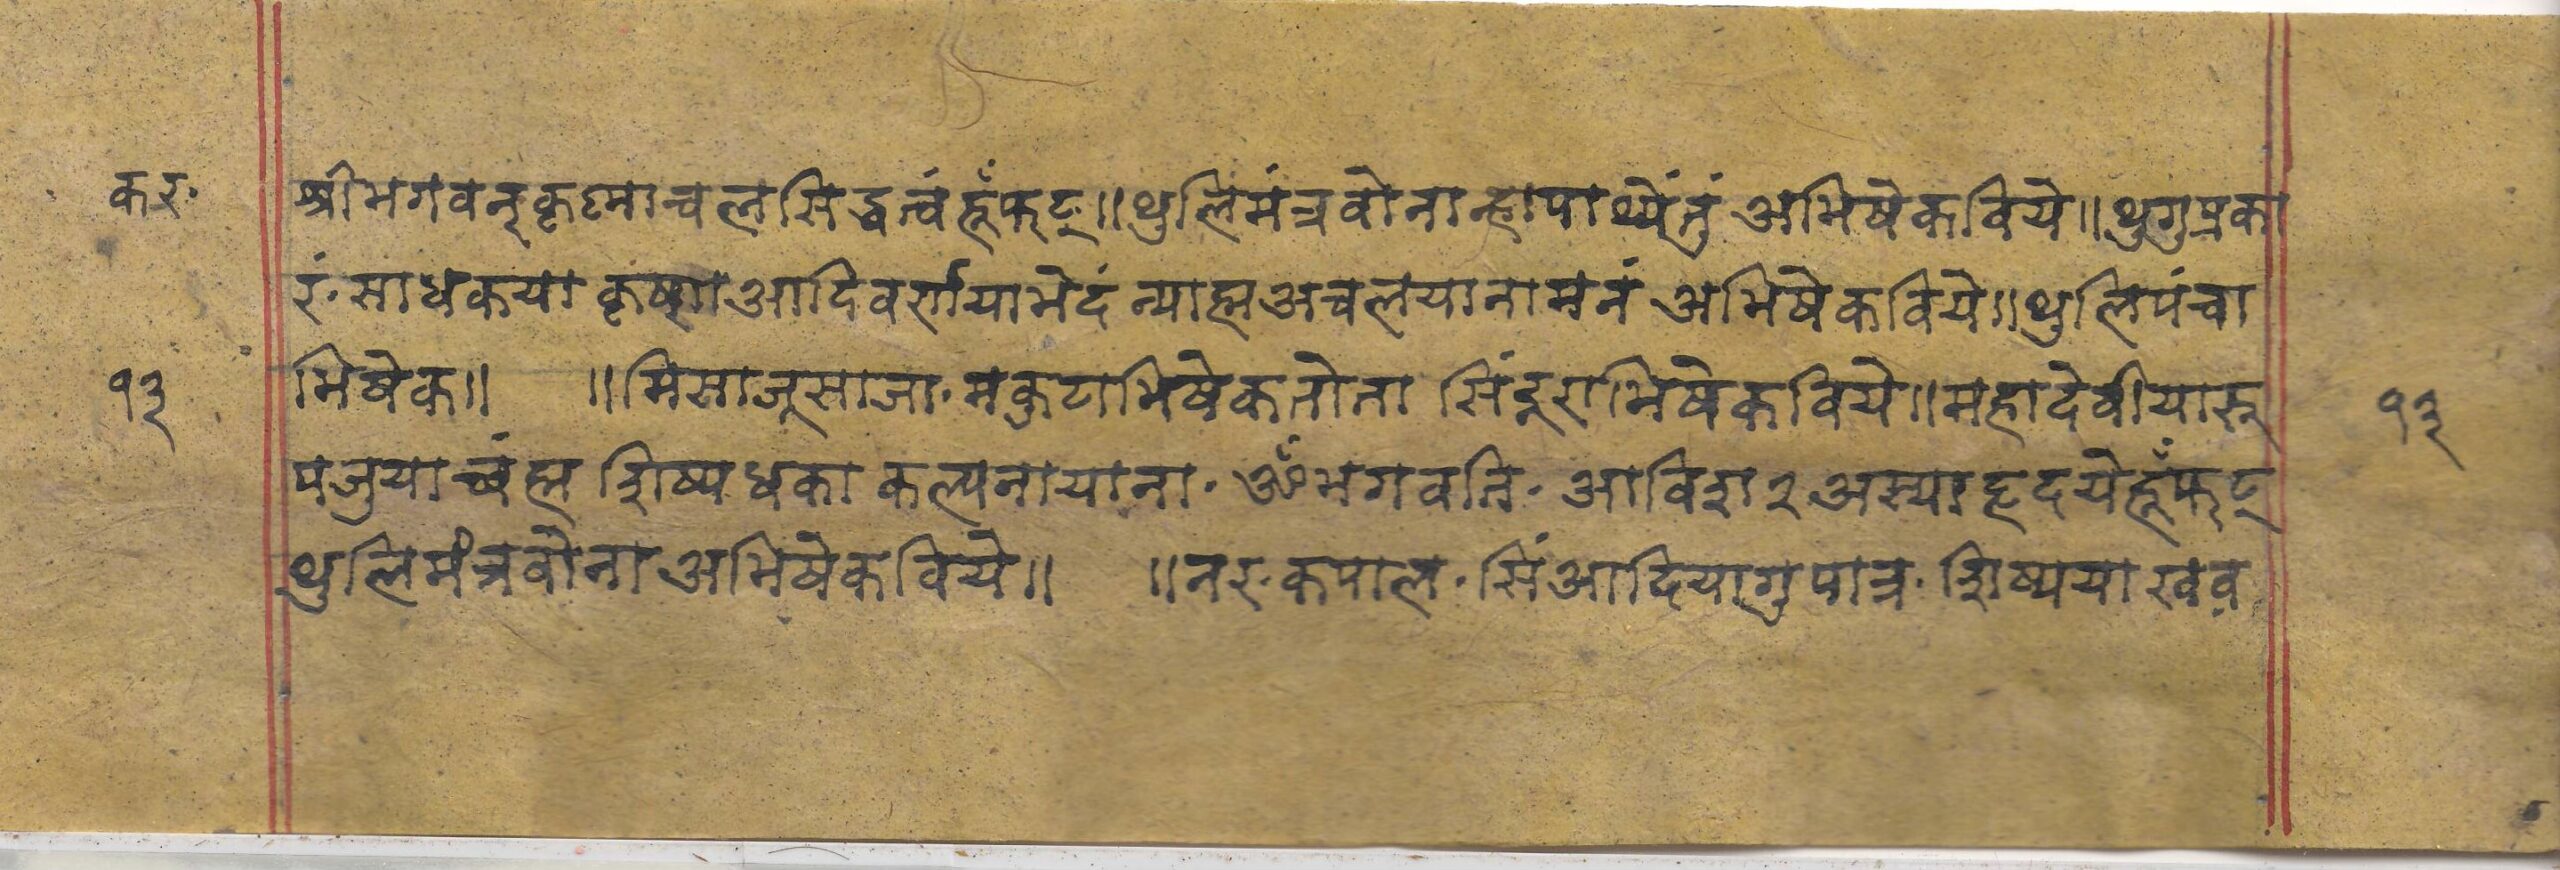 कर॰ श्रीभगवन्कृष्णाचलसिद्धत्वंहूँफट्॥थुलिमंत्रवोनान्हापाथ्येंतुं अभिषेकविये॥थुगुप्रका
रं॰साधकया कृष्णआदिवर्णयाभेदं न्याह्मअचलयानामनं अभिषेकविये॥थुलिपंचा
१३ भिषेक॥ ॥मिसाजूसाजा॰मकुटाभिषेकतोता सिंदूराभिषेकविये॥महादेवीयारू १३
पजुयाच्वंह्म शिष्यधका कल्पनायाना॰ॐभगवति॰आविश२अस्याहृदयेहूँफट्
थुलिमंत्रवोना अभिषेकविये॥ ॥नर॰कपाल॰सिंआदियागुपात्र॰शिष्ययाखव